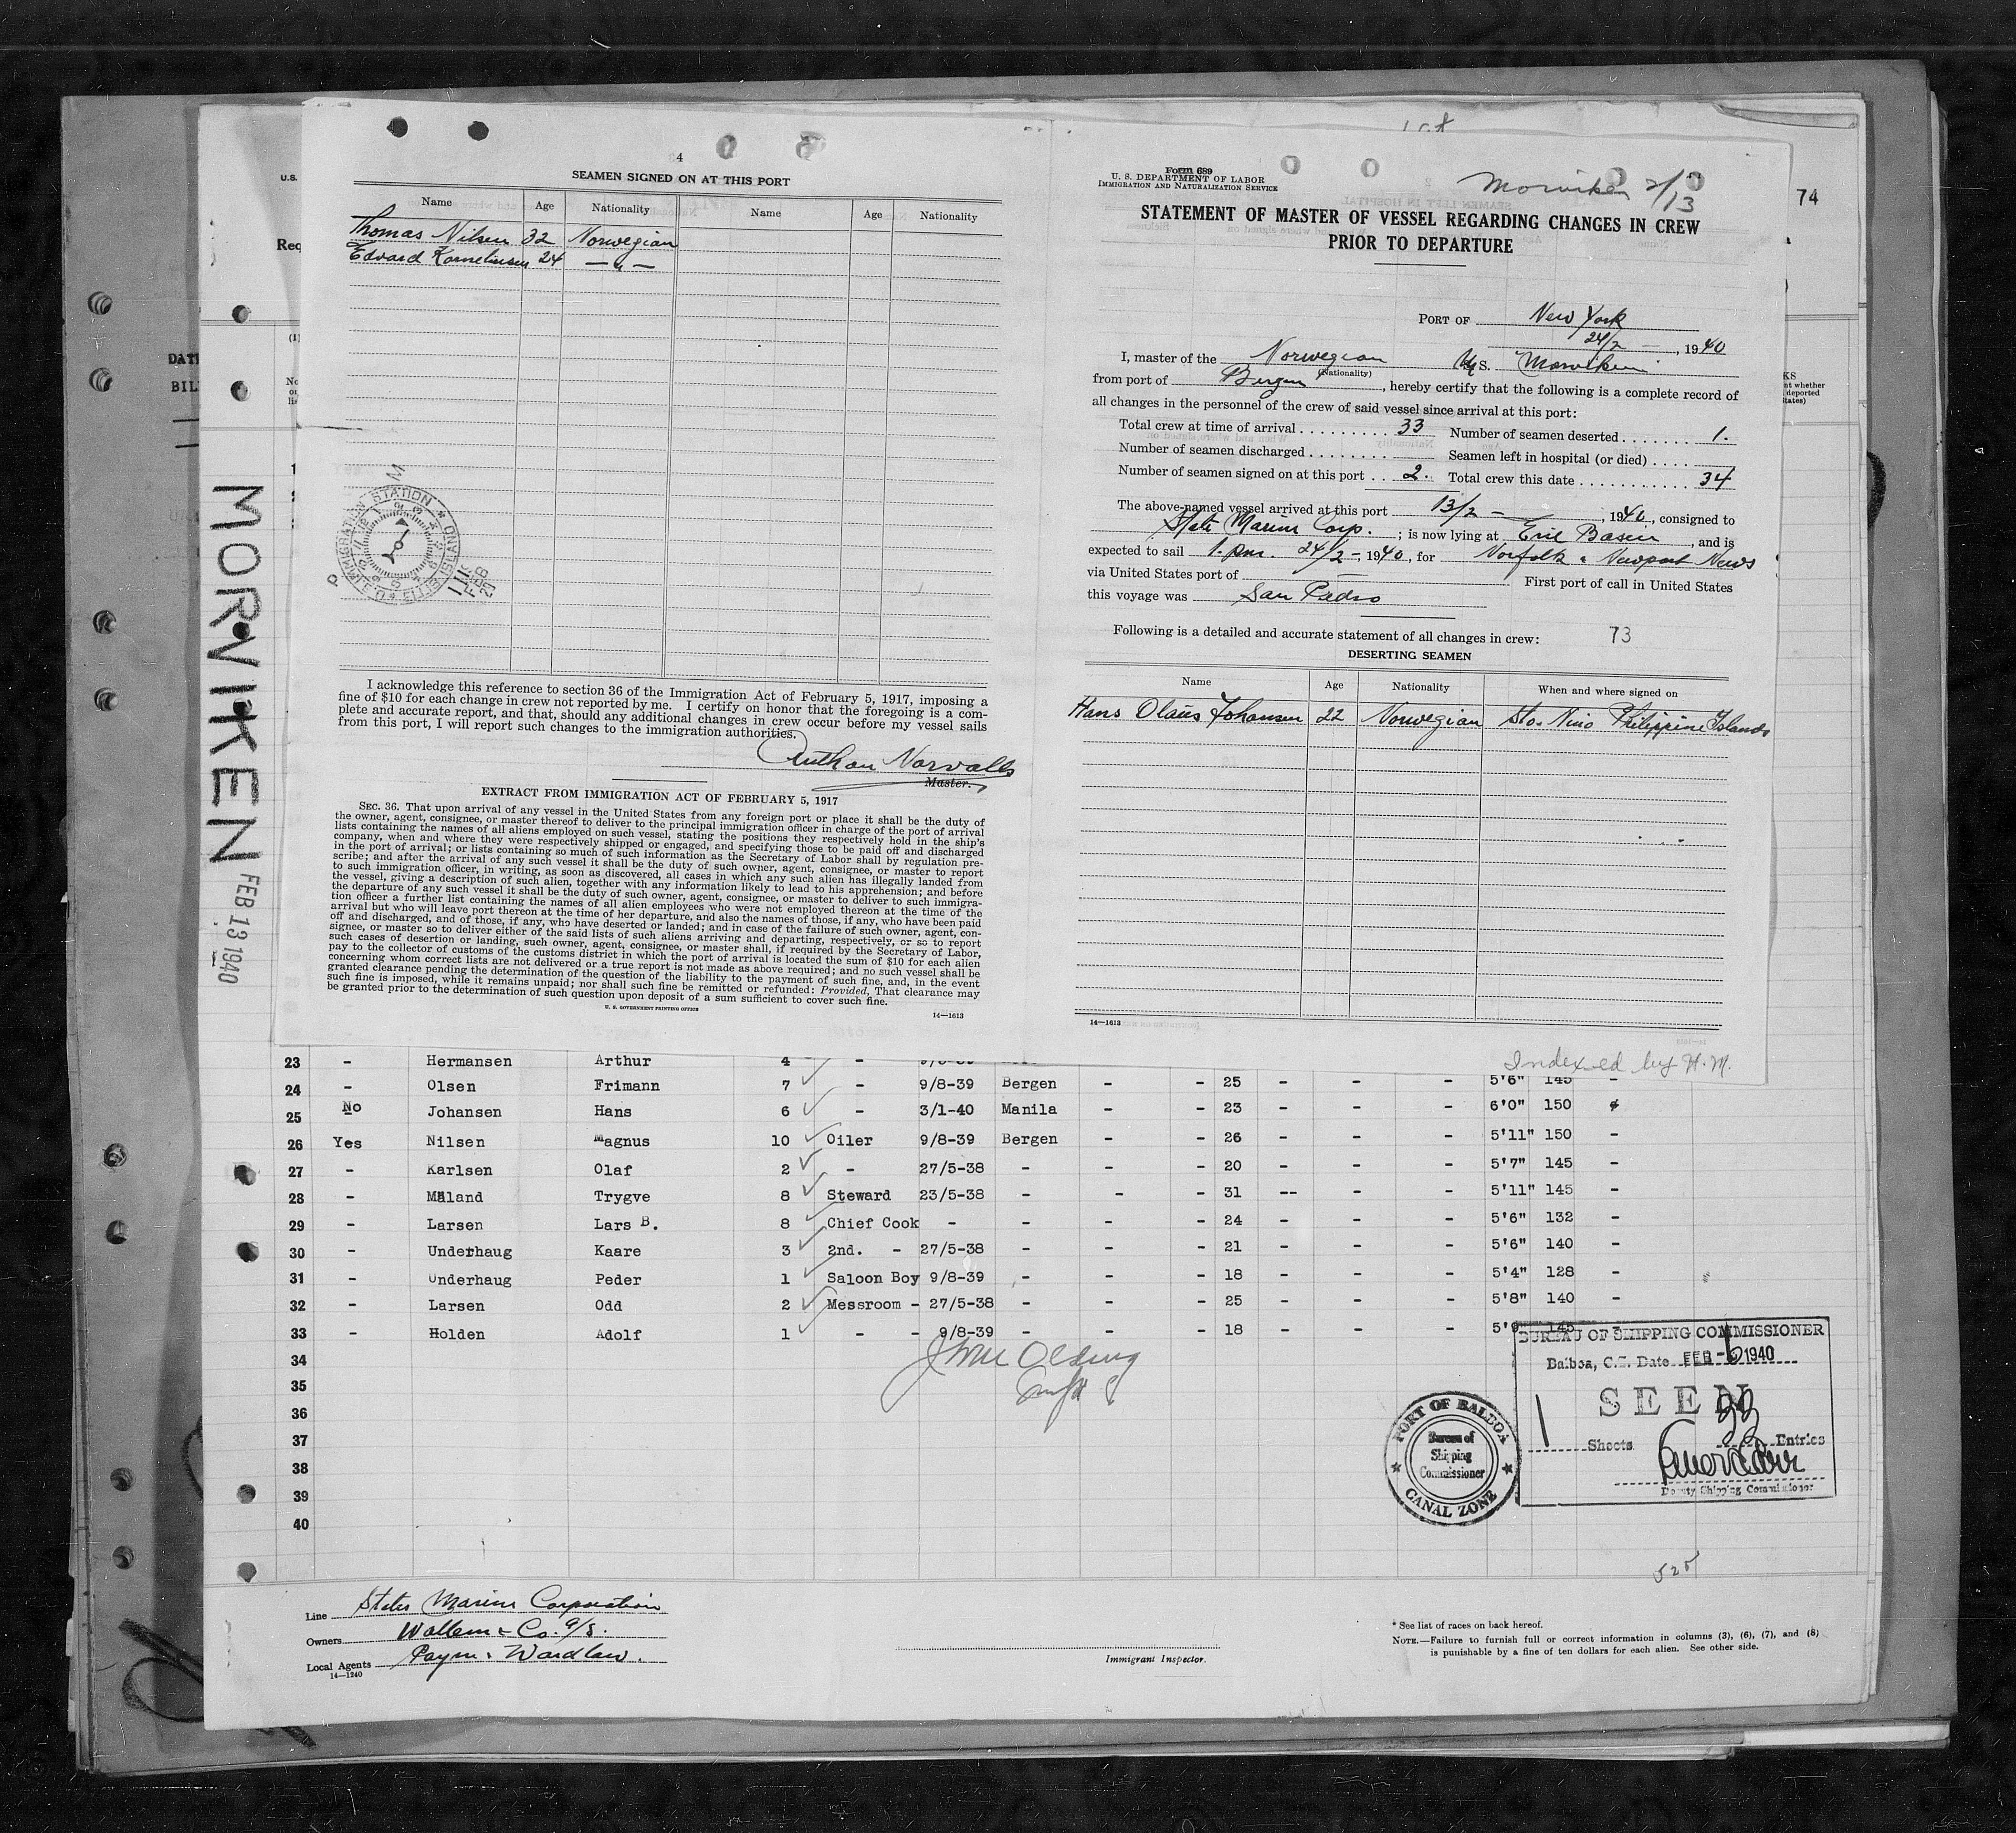 4
SEAMEN SIGNED ON AT THIS PORT
Name Age Nationality Name Age Nationality
Thomas Nilsen 32 Norwegian
Edvard Korneliusen 24 — " —
ELLIS ISLAND IMMIGRATION STATION
P M
FEB
I acknowledge this reference to section 36 of the Immigration Act of February 5, 1917, imposing a
fine of $10 for each change in crew not reported by me. I certify on honor that the foregoing is a com-
plete and accurate report, and that, should any additional changes in crew occur before my vessel sails
from this port, I will report such changes to the immigration authorities.
Master.
EXTRACT FROM IMMIGRATION ACT OF FEBRUARY 5, 1917
SEC. 36. That upon arrival of any vessel in the United States from any foreign port or place it shall be the duty of
the owner, agent, consignee, or master thereof to deliver to the principal immigration officer in charge of the port of arrival
lists containing the names of all aliens employed on such vessel, stating the positions they respectively hold in the ship's
company, when and where they were respectively shipped or engaged, and specifying those to be paid off and discharged
in the port of arrival; or lists containing so much of such information as the Secretary of Labor shall by regulation pre-
scribe; and after the arrival of any such vessel it shall be the duty of such owner, agent, consignee, or master to report
to such immigration officer, in writing, as soon as discovered, all cases in which any such alien has illegally landed from
the vessel, giving a description of such alien, together with any information likely to lead to his apprehension; and before
the departure of any such vessel it shall be the duty of such owner, agent, consignee, or master to deliver to such immigra-
tion officer a further list containing the names of all alien employees who were not employed thereon at the time of the
arrival but who will leave port thereon at the time of her departure, and also the names of those, if any, who have been paid
off and discharged, and of those, if any, who have deserted or landed; and in case of the failure of such owner, agent, con-
signee, or master so to deliver either of the said lists of such aliens arriving and departing, respectively, or so to report
such cases of desertion or landing, such owner, agent, consignee, or master shall, if required by the Secretary of Labor,
pay to the collector of customs of the customs district in which the port of arrival is located the sum of $10 for each alien
concerning whom correct lists are not delivered or a true report is not made as above required; and no such vessel shall be
granted clearance pending the determination of the question of the liability to the payment of such fine, and, in the event
such fine is imposed, while it remains unpaid; nor shall such fine be remitted or refunded: Provided, That clearance may
be granted prior to the determination of such question upon deposit of a sum sufficient to cover such fine.
U. S. GOVERNMENT PRINTING OFFICE
14—1613
Form 689
U. S. DEPARTMENT OF LABOR
IMMIGRATION AND NATURALIZATION SERVICE
Morviken 2/13
74
STATEMENT OF MASTER OF VESSEL REGARDING CHANGES IN CREW
PRIOR TO DEPARTURE
PORT OF New York
24/2 — , 1940
I, master of the Norwegian M/S. Morviken
(Nationality)
from port of Bergen , hereby certify that the following is a complete record of
all changes in the personnel of the crew of said vessel since arrival at this port:
Total crew at time of arrival 33 Number of seamen deserted 1.
Number of seamen discharged Seamen left in hospital (or died)
Number of seamen signed on at this port 2. Total crew this date 34
The above-named vessel arrived at this port 13/2 — , 1940, consigned to
State Marine Corp. ; is now lying at Erie Basin , and is
expected to sail 1. pm. 24/2 - 1940, for Norfolk & Newport News
via United States port of First port of call in United States
this voyage was San Pedro
Following is a detailed and accurate statement of all changes in crew: 73
DESERTING SEAMEN
Name Age Nationality When and where signed on
Hans Olaus Johansen 22 Norwegian Sto. Nino Philippine Islands
14—1613
Indexed by H. M.
U.S.
Req
DATE
BIL
MORVIKEN FEB 13 1940
23 - Hermansen Arthur 4 -
24 - Olsen Frimann 7 - 9/8-39 Bergen - - 25 - - - 5'6" 145 -
25 No Johansen Hans 6 - 3/1-40 Manila - - 23 - - - 6'0" 150
26 Yes Nilsen Magnus 10 Oiler 9/8-39 Bergen - - 26 - - - 5'11" 150 -
27 - Karlsen Olaf 2 - 27/5-38 - - - 20 - - - 5'7" 145 -
28 - Mäland Trygve 8 Steward 23/5-38 - - - 31 -- - - 5'11" 145 -
29 - Larsen Lars B. 8 Chief Cook - - - - 24 - - - 5'6" 132 -
30 - Underhaug Kaare 3 2nd. - 27/5-38 - - - 21 - - - 5'6" 140 -
31 - Underhaug Peder 1 Saloon Boy 9/8-39 - - - 18 - - - 5'4" 128 -
32 - Larsen Odd 2 Messroom - 27/5-38 - - - 25 - - - 5'8" 140 -
33 - Holden Adolf 1 - - 9/8-39 - - - 18 - - - 5'9" 145 -
34
35
36
37
38
39
40
BUREAU OF SHIPPING COMMISSIONER
Balboa, C.Z. Date FEB -6 1940
SEEN
1 Sheets 33 Entries
Deputy Shipping Commissioner
PORT OF BALBOA
Bureau of
Shipping
Commissioner
CANAL ZONE
525
Line States Marine Corporation
Owners Wallem & Co. A/S.
Local Agents Payne & Wardlaw.
14—1240
Immigrant Inspector.
* See list of races on back hereof.
NOTE.—Failure to furnish full or correct information in columns (3), (6), (7), and (8)
is punishable by a fine of ten dollars for each alien. See other side.